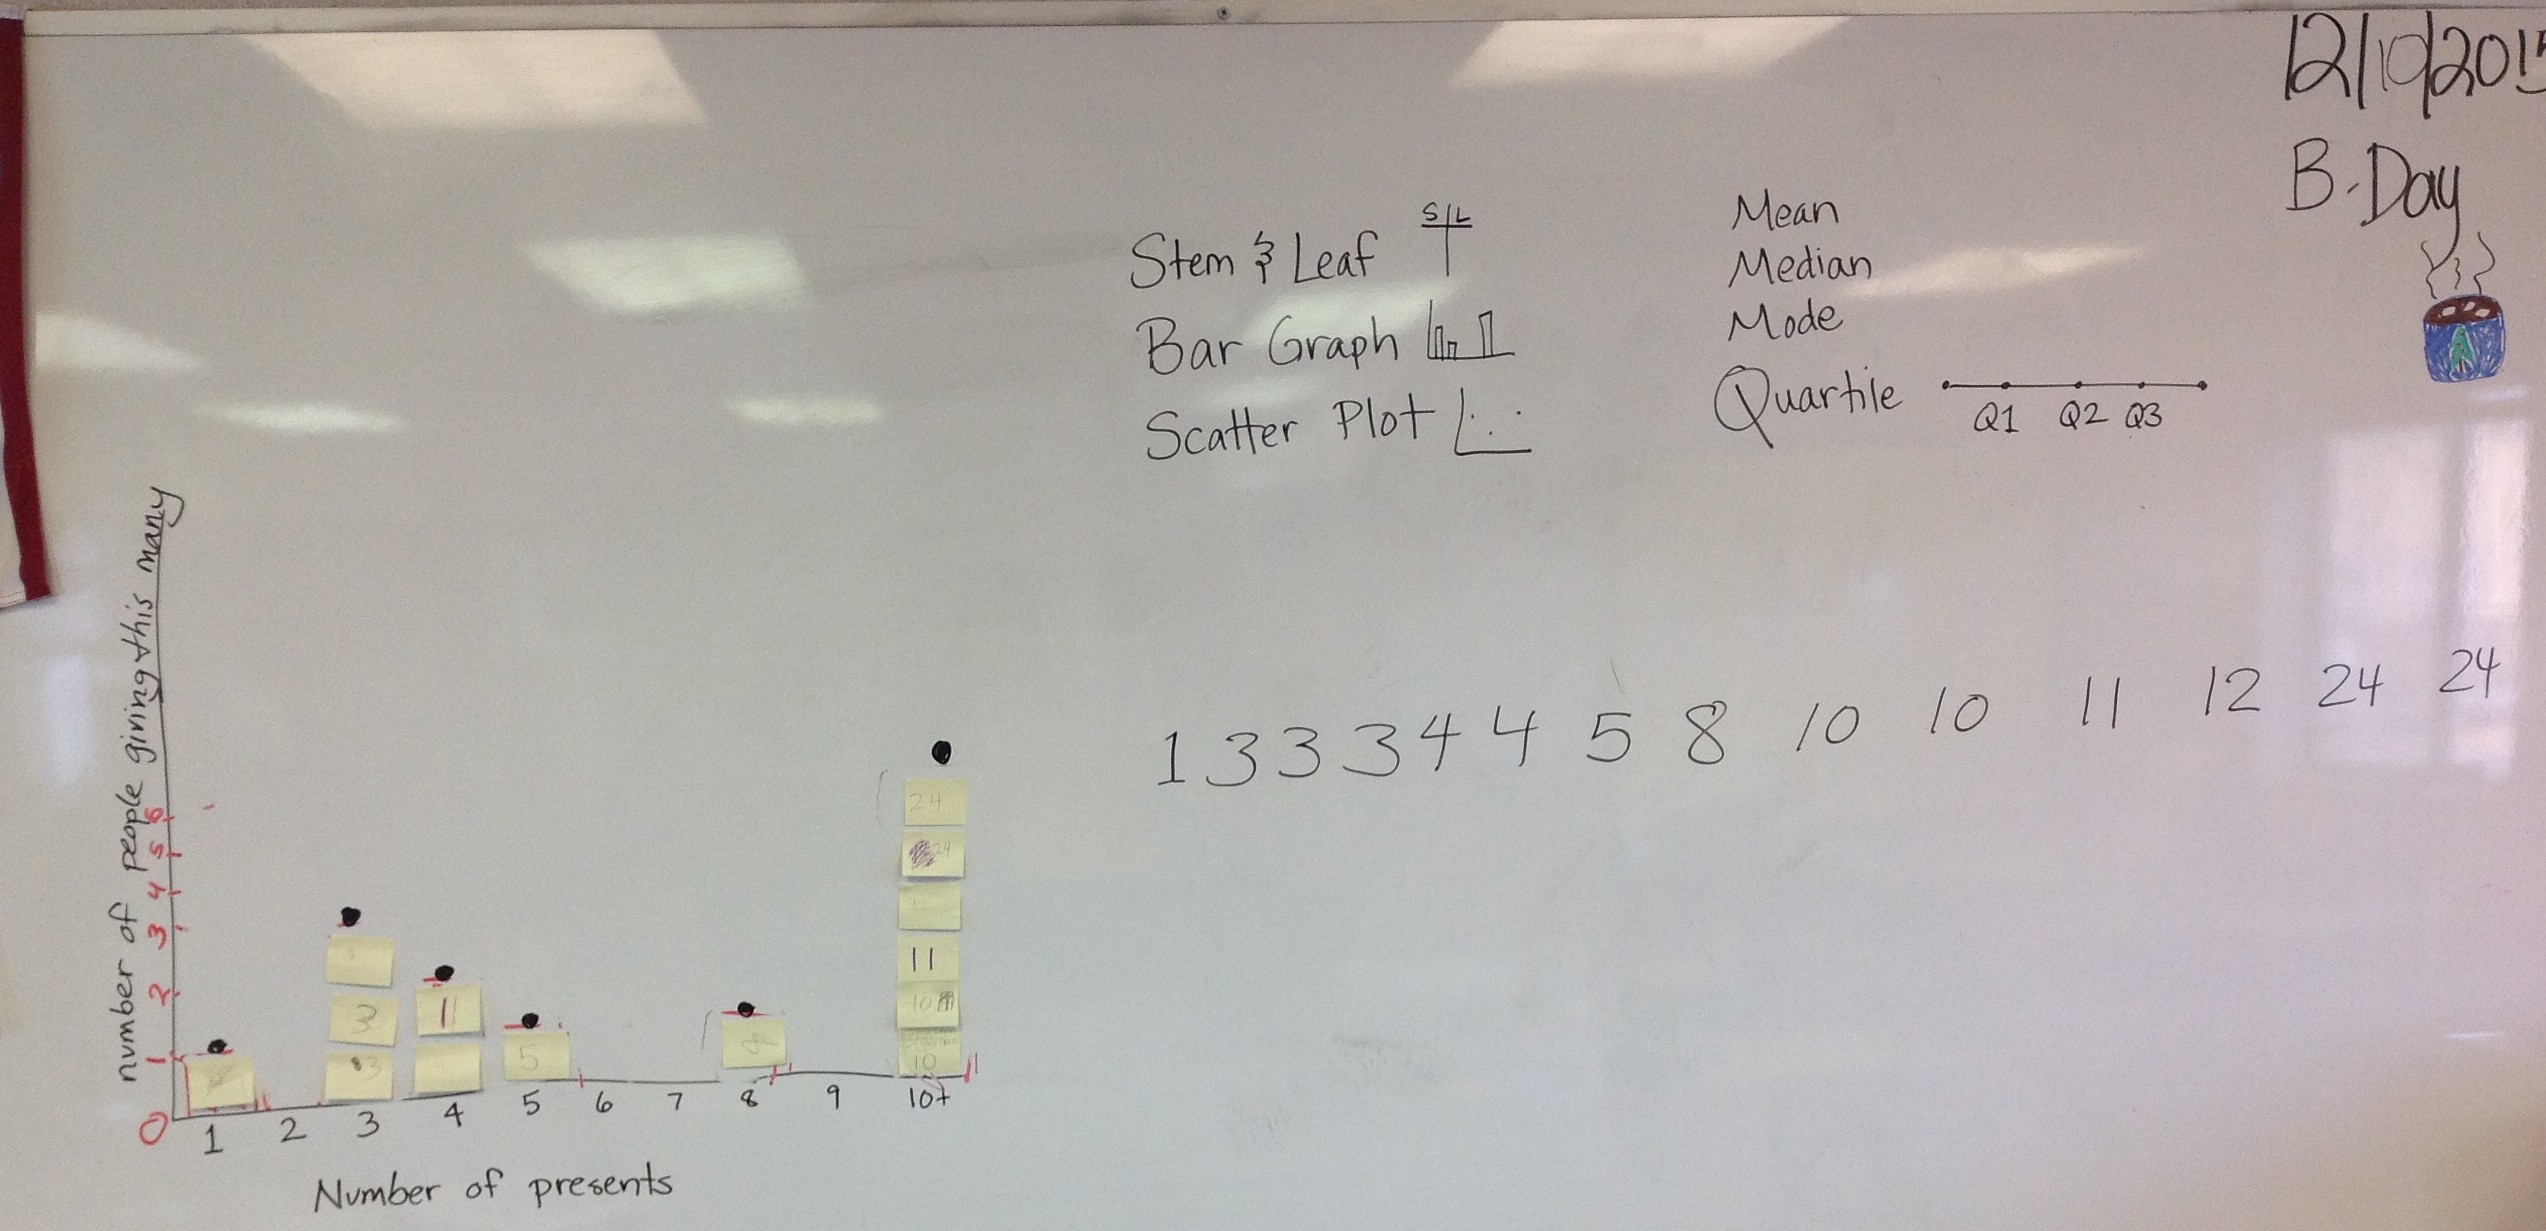 12/10/2015
B-Day
Stem & Leaf S/L
Bar Graph
Scatter Plot
Mean
Median
Mode
Quartile
Q1 Q2 Q3
1 3 3 3 4 4 5 8 10 10 11 12 24 24
number of people giving this many
6
5
4
3
2
1
0
24
24
11
10
10
3
3
11
5
8
1 2 3 4 5 6 7 8 9 10+
Number of presents